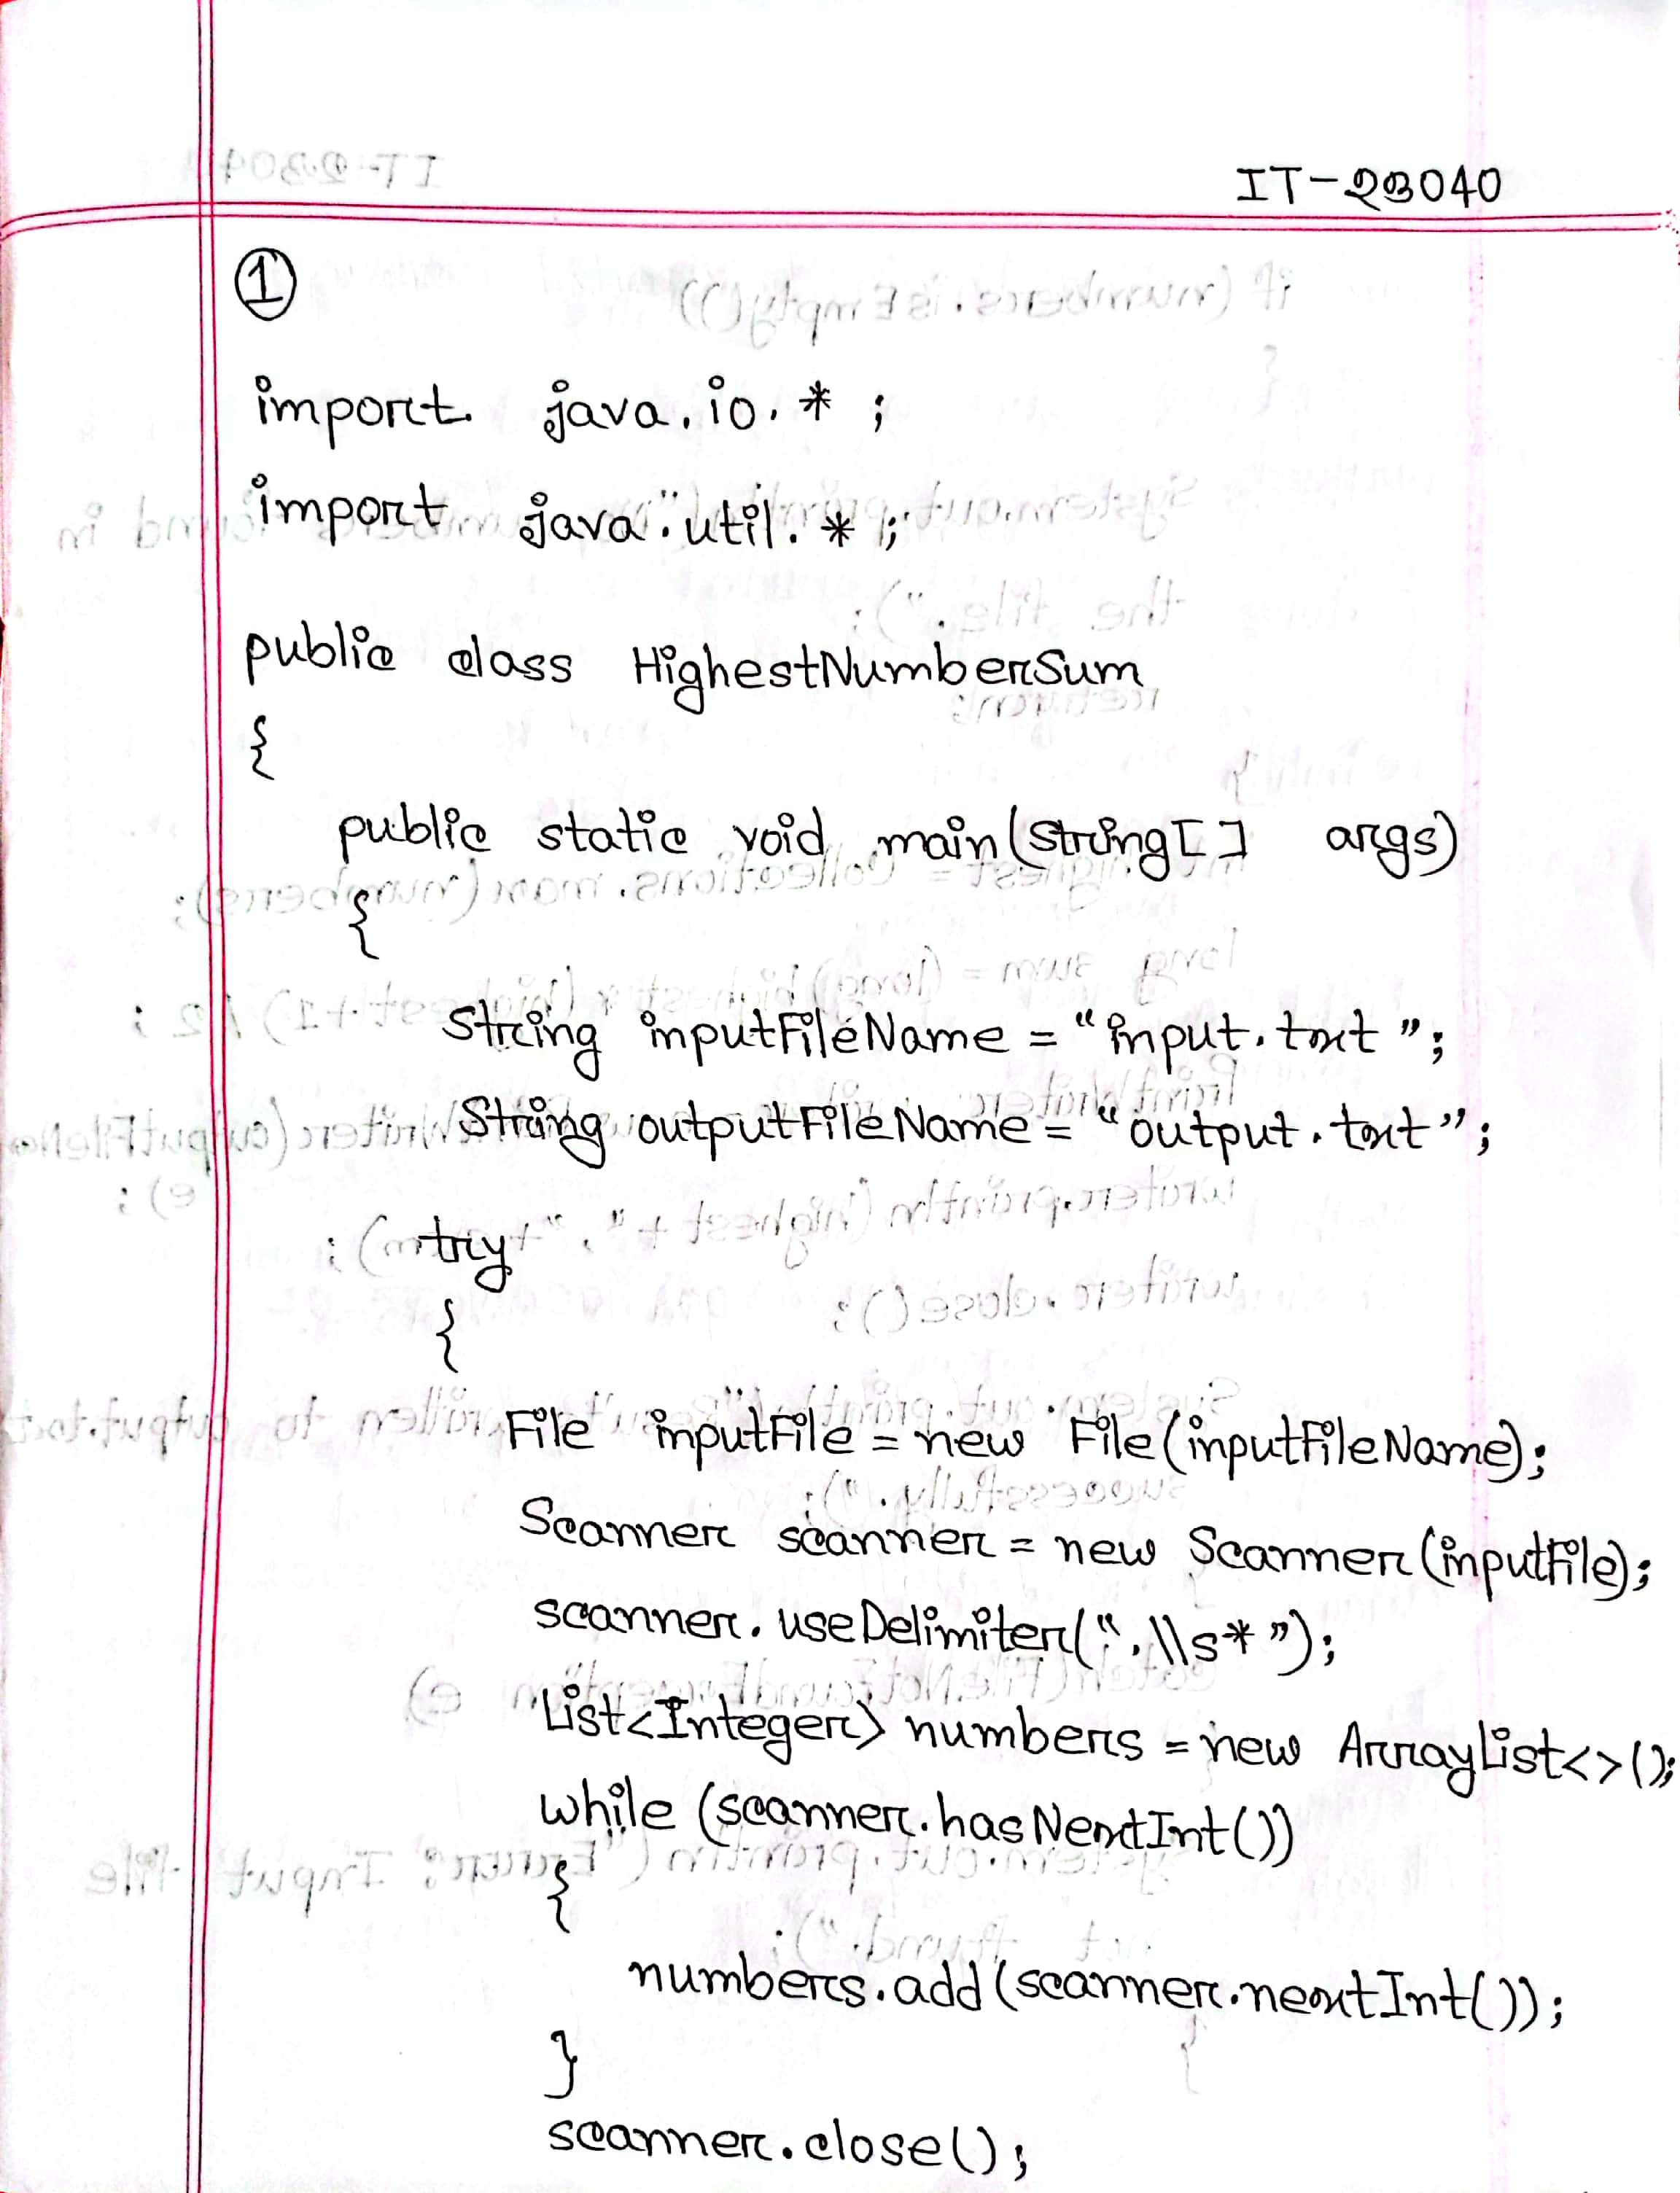 IT-23040
①
import java.io.* ;
import java.util.* ;
public class HighestNumberSum
{
public static void main(String[] args)
{
String inputFileName = "input.txt";
String outputFileName = "output.txt";
try
{
File inputFile = new File(inputFileName);
Scanner scanner = new Scanner(inputFile);
scanner.useDelimiter(",\\s*");
List<Integer> numbers = new ArrayList<>();
while (scanner.hasNextInt())
{
numbers.add(scanner.nextInt());
}
scanner.close();